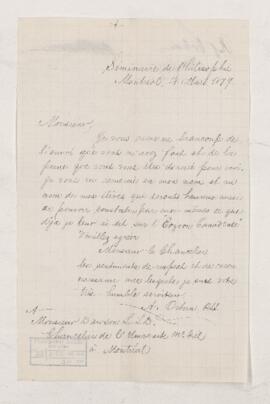 Séminaire de Philosophie
Montréal, 7 Mars 1879
Monsieur,
Je vous remercie beaucoup de
l'envoi que vous m'avez fait et de la
peine que vous vous êtes donnée pour moi.
Je vous en remercie en mon nom et au
nom de mes élèves qui seront heureux aussi
de pouvoir constater par eux-mêmes ce que
déjà je leur ai dit sur l'"Eozoon Canadense"
Veuillez agréer
Monsieur le Chancelier
les sentiments de respect et de recon
naissance avec lesquels je suis votre
très humble serviteur,
A.
A
Monsieur Dawson L.L.D.
Chancelier de l'Université McGill
à Montréal